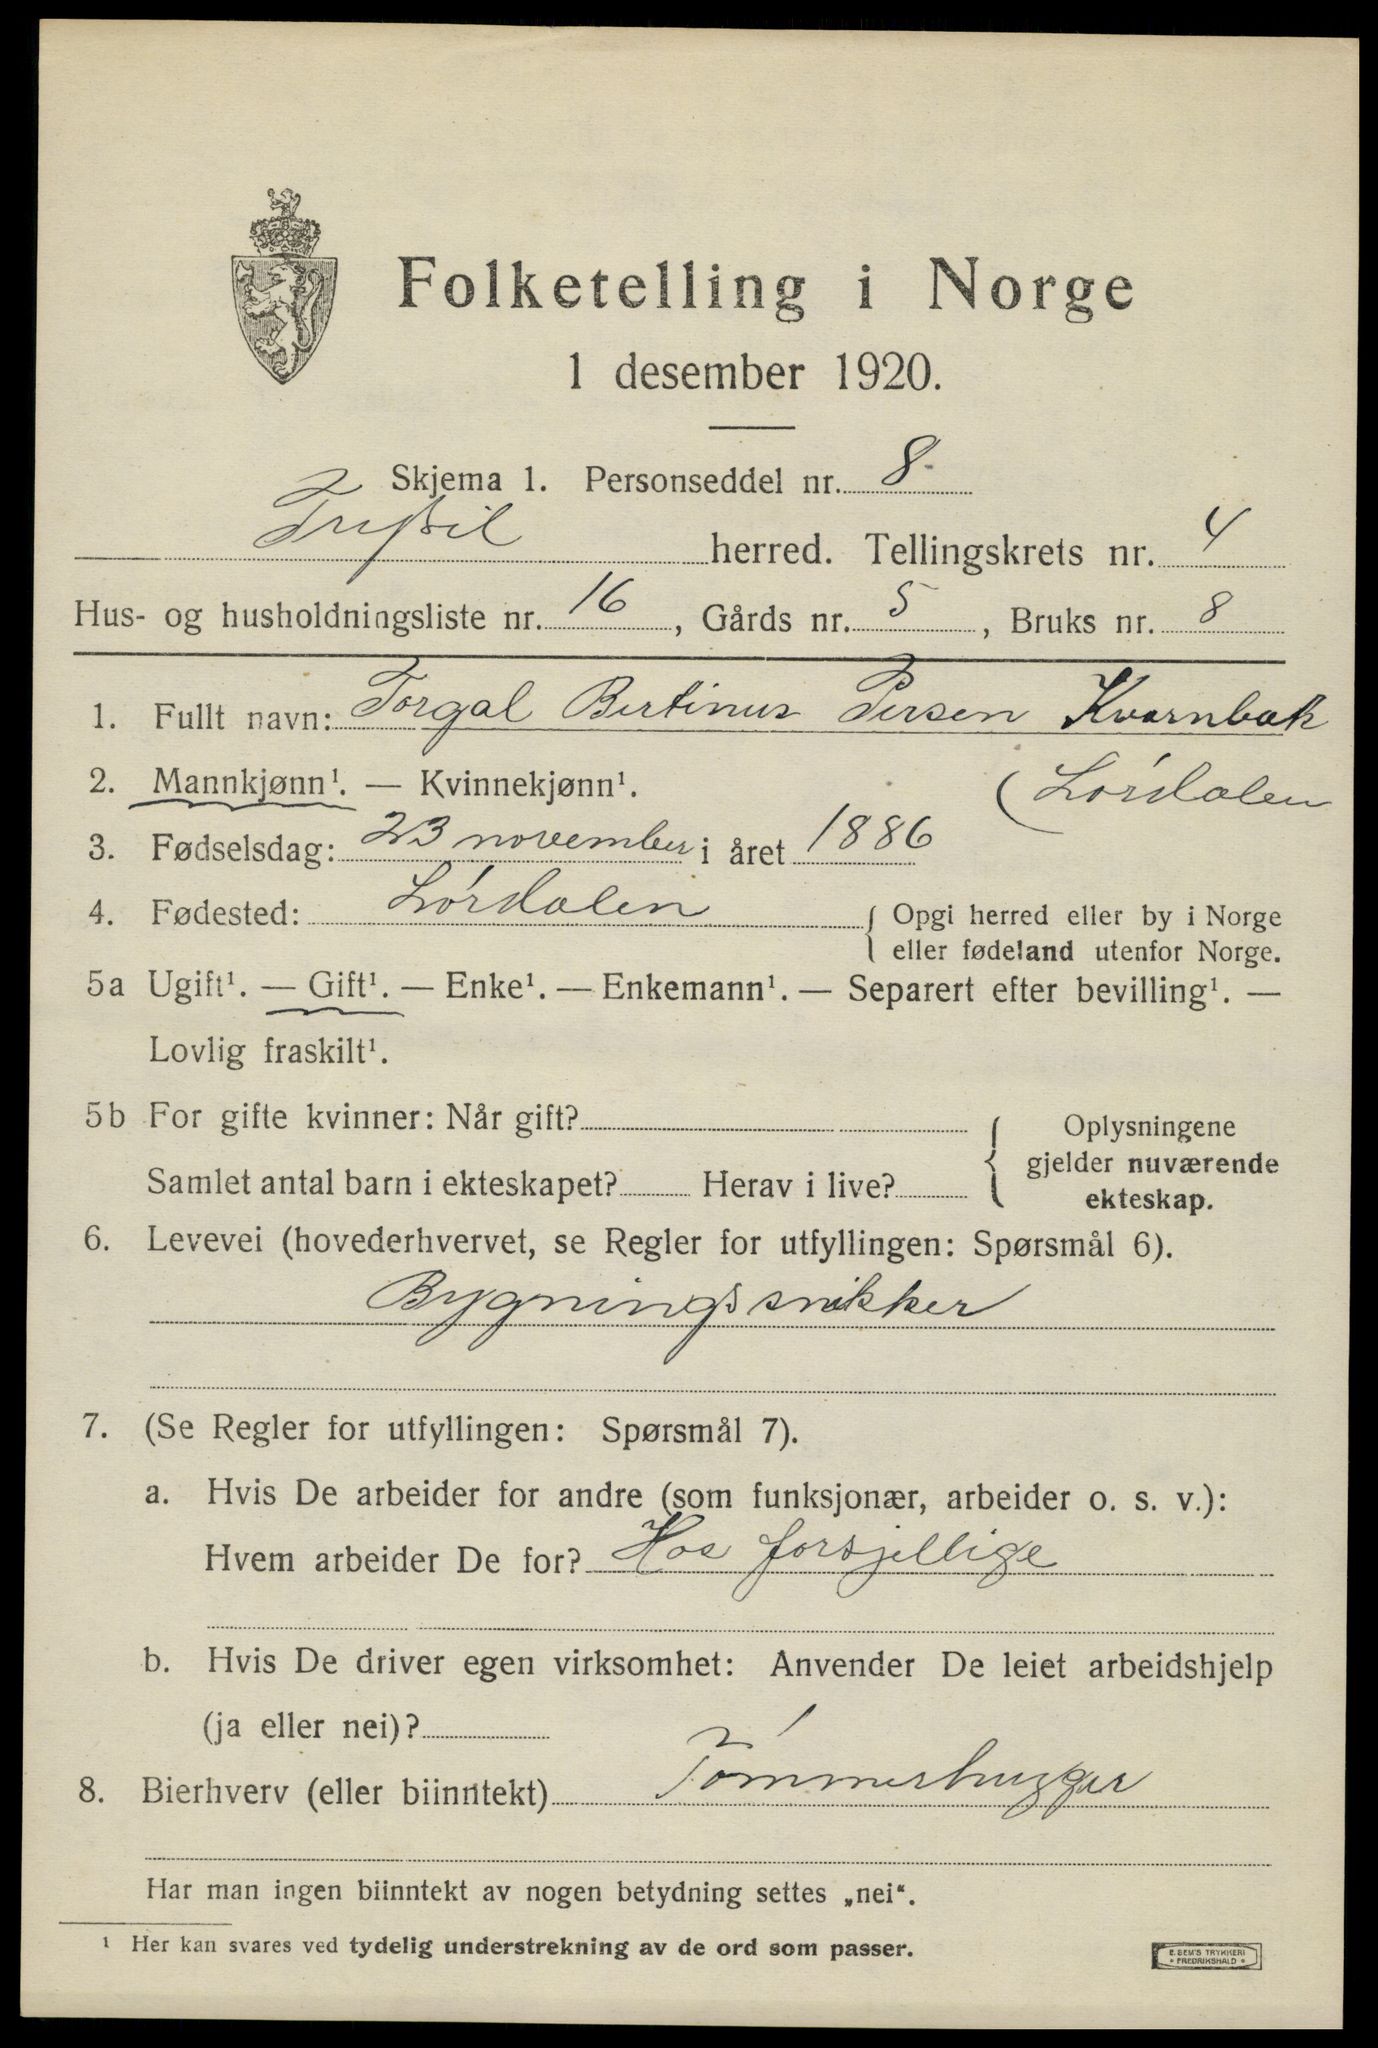 Folketelling i Norge
1 desember 1920.
Skjema 1. Personseddel nr. 8
Trysil herred. Tellingskrets nr. 4
Hus- og husholdningsliste nr. 16, Gårds nr. 5, Bruks nr. 8
1. Fullt navn: Torgal Bertinus Persen Kvernbæk
2. Mannkjønn¹. — Kvinnekjønn¹. (Lördalen
3. Fødselsdag: 23 november i året 1886
4. Fødested: Lördalen { Opgi herred eller by i Norge
eller fødeland utenfor Norge.
5a Ugift¹. — Gift¹. — Enke¹. — Enkemann¹. — Separert efter bevilling¹. —
Lovlig fraskilt¹.
5b For gifte kvinner: Når gift?
Samlet antal barn i ekteskapet? Herav i live?
{ Oplysningene
gjelder nuværende
ekteskap.
6. Levevei (hovederhvervet, se Regler for utfyllingen: Spørsmål 6).
Bygningssnikker
7. (Se Regler for utfyllingen: Spørsmål 7).
a. Hvis De arbeider for andre (som funksjonær, arbeider o. s. v.):
Hvem arbeider De for? Hos forsjellige
b. Hvis De driver egen virksomhet: Anvender De leiet arbeidshjelp
(ja eller nei)?
8. Bierhverv (eller biinntekt) Tömmerhugger
Har man ingen biinntekt av nogen betydning settes „nei“.
¹ Her kan svares ved tydelig understrekning av de ord som passer.
E. SEM'S TRYKKERI
• FREDRIKSHALD •